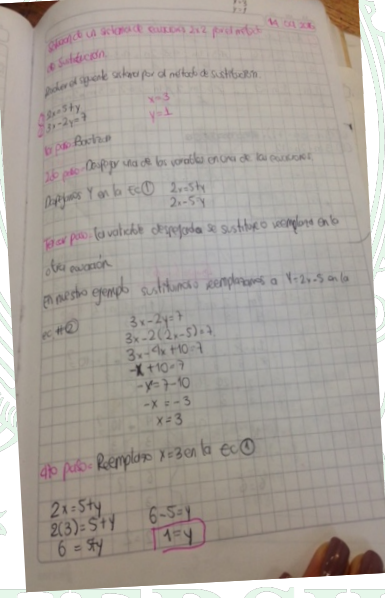 de un sistema de ecuaciones 2x2 por el metodo
de sustitución.
el siguiente sistema por el método de sustitución
2x=5+y x=3
3x-2y=7 y=1
1er paso:
2do paso: Despejar una de las variables en una de las ecuaciones.
Despejamos Y en la EC① 2x=5+y
2x-5=y
Tercer paso: la variable despejada se sustituye o reemplaza en la
otra ecuación
En nuestro ejemplo sustituimos o reemplazamos a Y=2x-5 en la
ec #② 3x-2y=7
3x-2(2x-5)=7
3x-4x+10=7
-x+10=7
-x=7-10
-x=-3
x=3
4to paso= Reemplazo x=3 en la EC①
2x=5+y 6-5=y
2(3)=5+y 1=y
6=5+y